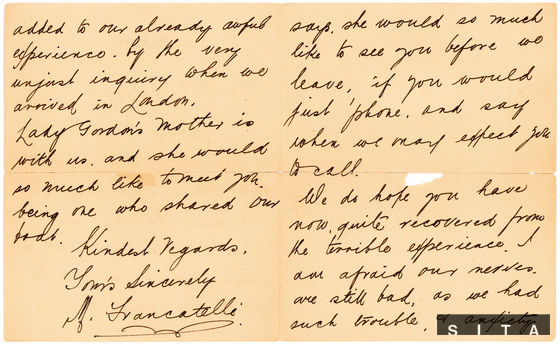 says, she would so much
like to see you before we
leave, if you would
just 'phone, and say
when we may expect you
to call.
We do hope you have
now, quite recovered from
the terrible experience. I
am afraid our nerves.
are still bad, as we had
such trouble, & anxiety
added to our already awful
experience. by the very
unjust inquiry when we
arrived in London.
Lady Gordon's Mother is
with us. and she would
so much like to meet you.
being one who shared our
boat.
Kindest Regards.
Yours Sincerely
Francatelli.
SITA